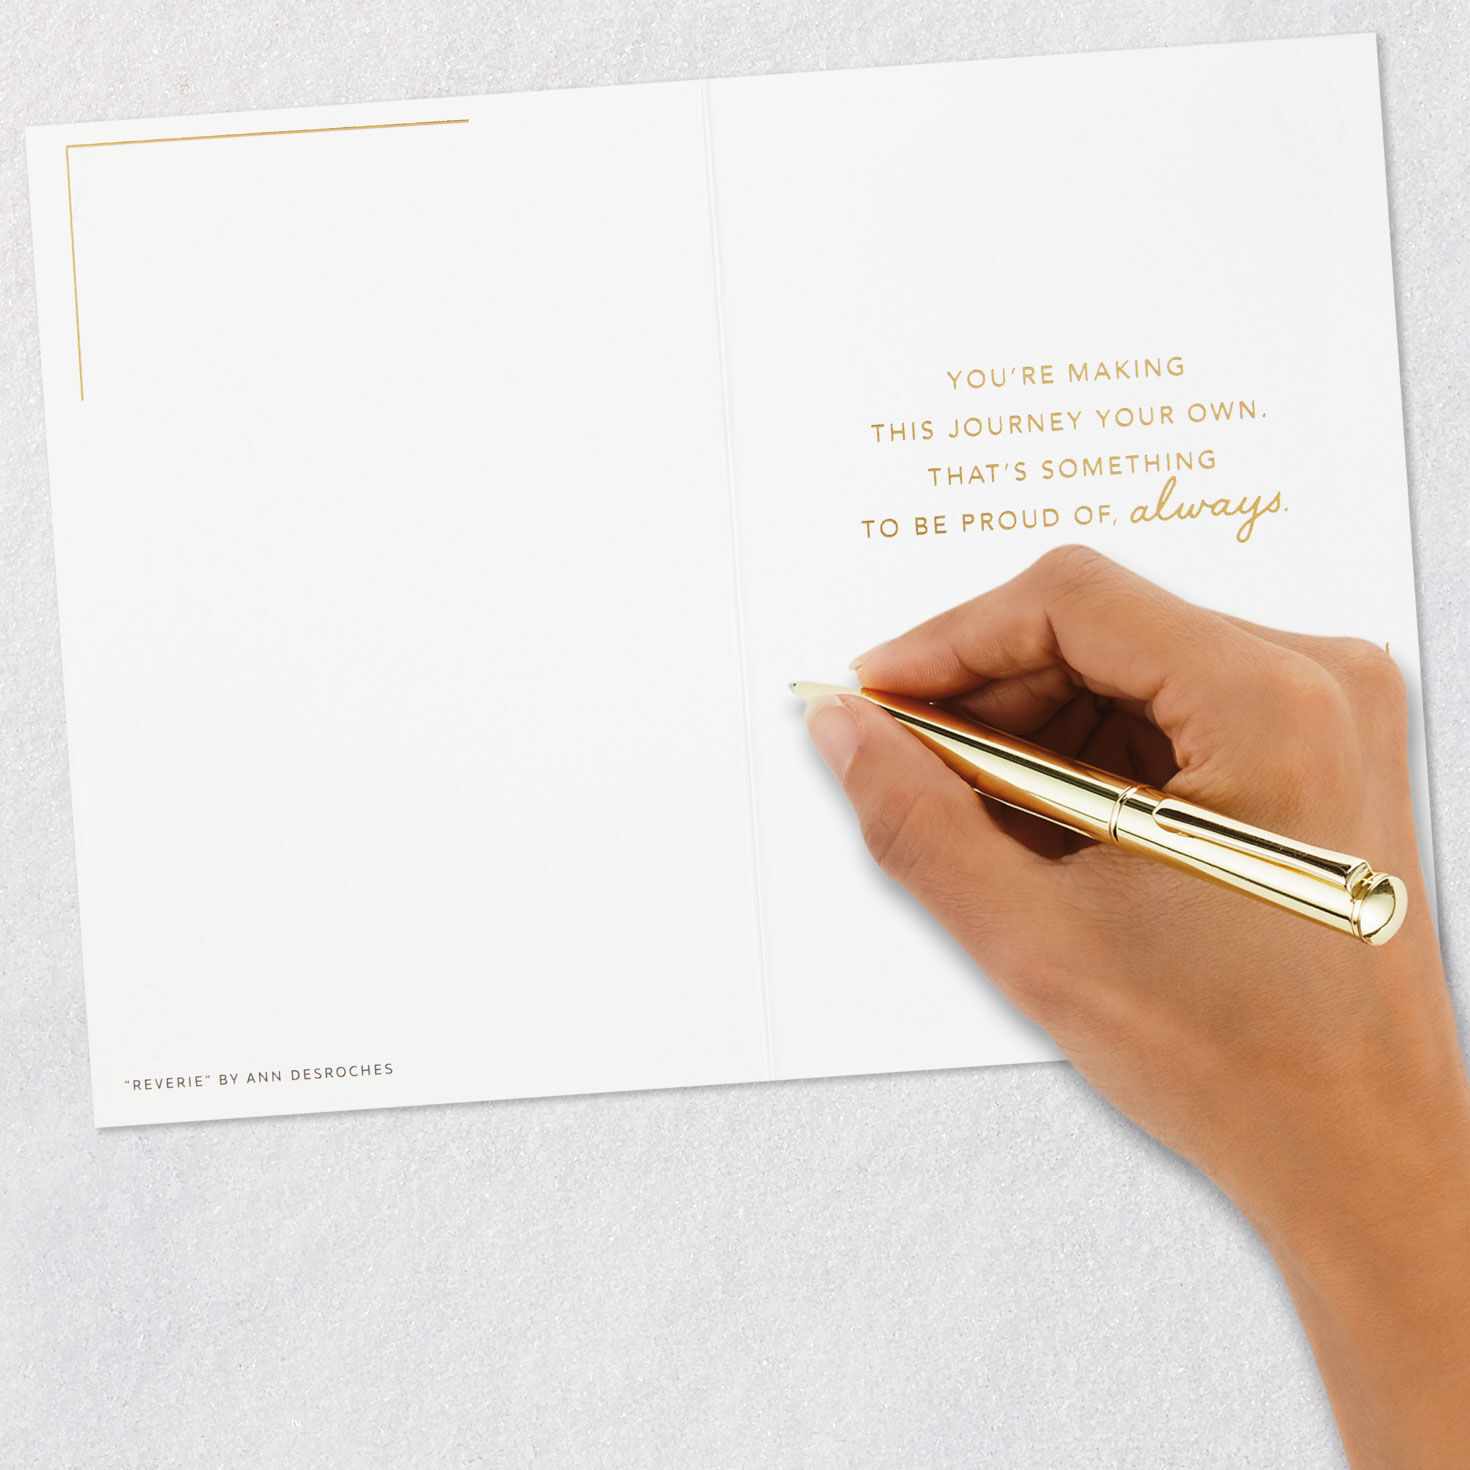 YOU'RE MAKING
THIS JOURNEY YOUR OWN.
THAT'S SOMETHING
TO BE PROUD OF, always.
"REVERIE" BY ANN DESROCHES